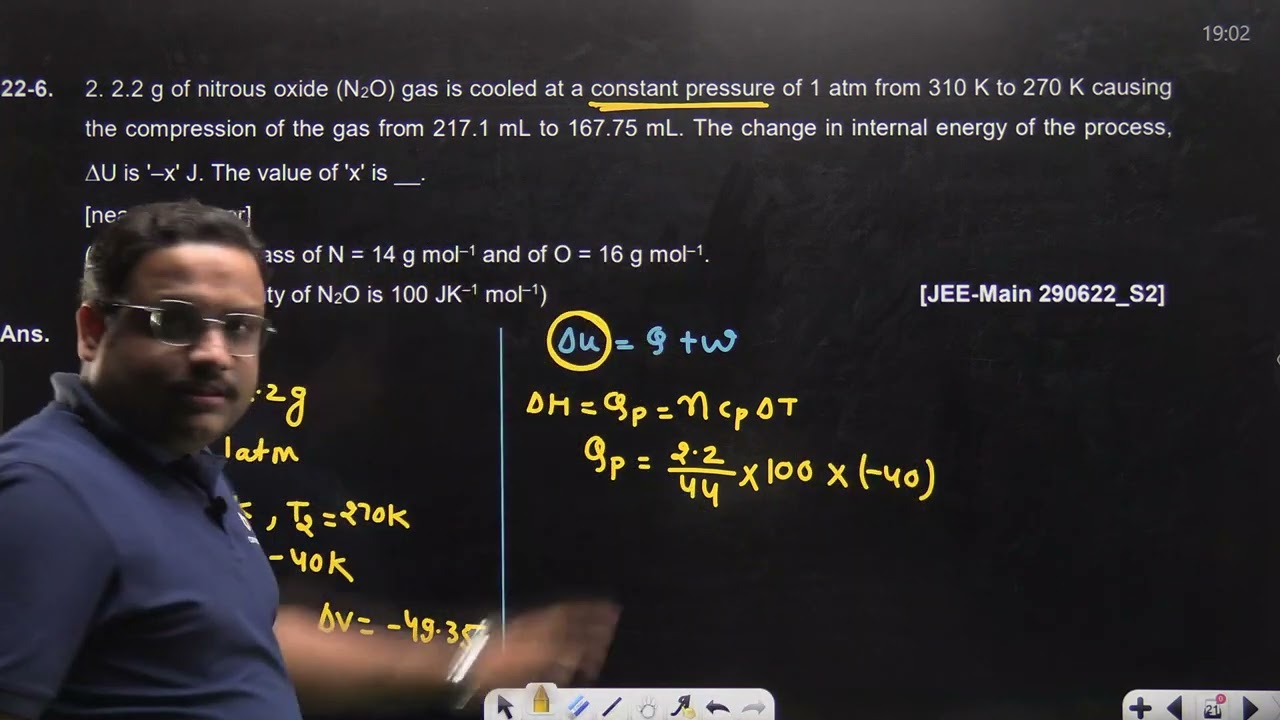 19:02
22-6. 2. 2.2 g of nitrous oxide (N₂O) gas is cooled at a constant pressure of 1 atm from 310 K to 270 K causing
the compression of the gas from 217.1 mL to 167.75 mL. The change in internal energy of the process,
ΔU is '–x' J. The value of 'x' is __.
of N = 14 g mol⁻¹ and of O = 16 g mol⁻¹.
of N₂O is 100 JK⁻¹ mol⁻¹)
[JEE-Main 290622_S2]
Ans.
2g
1atm
, T₂ = 270K
-40K
ΔV = -49.35
ΔU = q + w
ΔH = qₚ = n cₚ ΔT
qₚ = 2.2/44 × 100 × (-40)
21